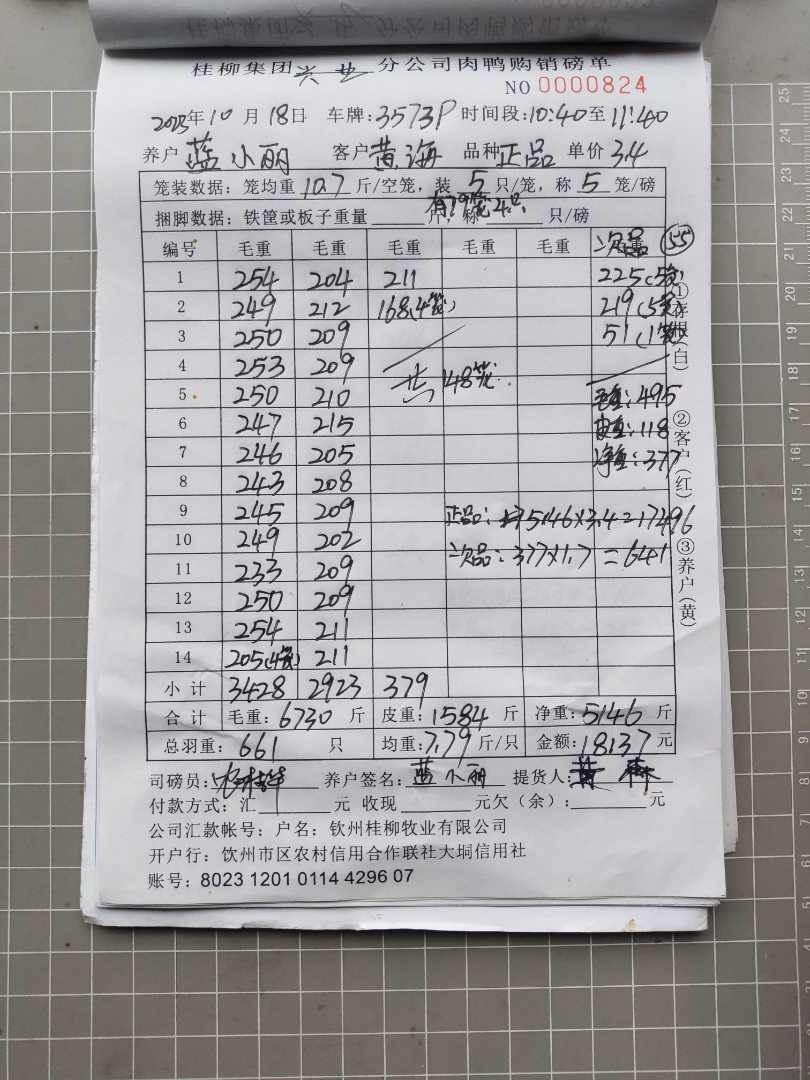 桂柳集团兴业分公司肉鸭购销磅单
NO 0000824
2023年10月18日 车牌:3573P 时间段:10:40至11:40
养户 蓝小丽 客户 黄海 品种 正品 单价 3.4
笼装数据:笼均重 10.7 斤/空笼,装 5 只/笼,称 5 笼/磅
有79笼4只
捆脚数据:铁筐或板子重量 斤,称 只/磅
编号 毛重 毛重 毛重 毛重 毛重 次品 55
1 254 204 211 225(5笼)
2 249 212 168(4笼) 219(5笼)
3 250 209 51(1笼)
4 253 209
5 250 210 共148笼 毛重:495
6 247 215 皮重:118
7 246 205 净重:377
8 243 208
9 245 209 正品:5146×3.4=17496
10 249 202
11 233 209 次品:377×1.7=641
12 250 209
13 254 211
14 205(4笼) 211
小计 3428 2923 379
合计 毛重:6730 斤 皮重:1584 斤 净重:5146 斤
总羽重:661 只 均重:7.79 斤/只 金额:18137 元
司磅员: 养户签名:蓝小丽 提货人:黄
付款方式:汇 元 收现 元欠(余): 元
公司汇款帐号:户名:钦州桂柳牧业有限公司
开户行:饮州市区农村信用合作联社大垌信用社
账号:8023 1201 0114 4296 07
①存根(白)
②客户(红)
③养户(黄)